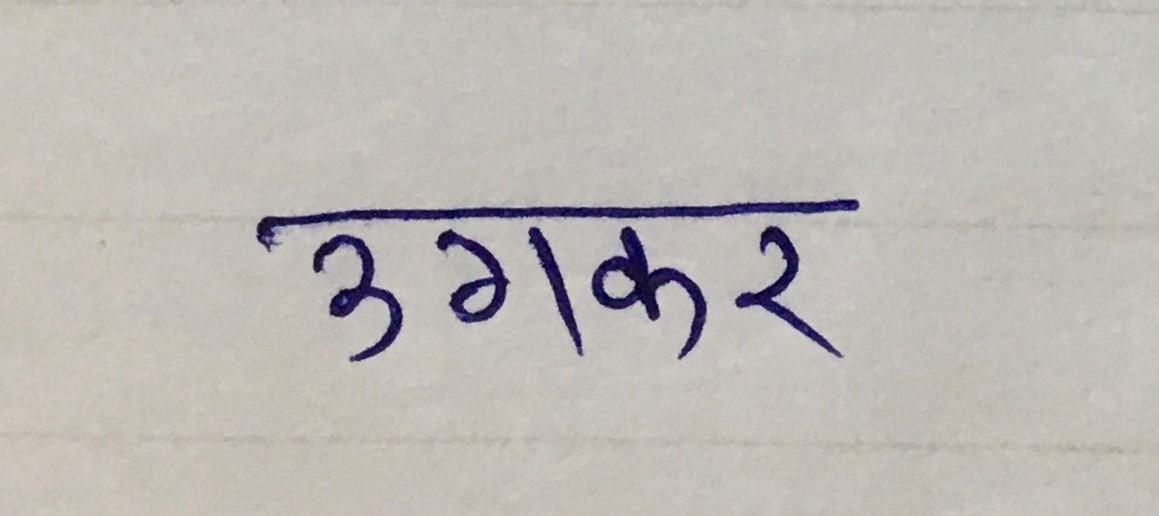 उगकर